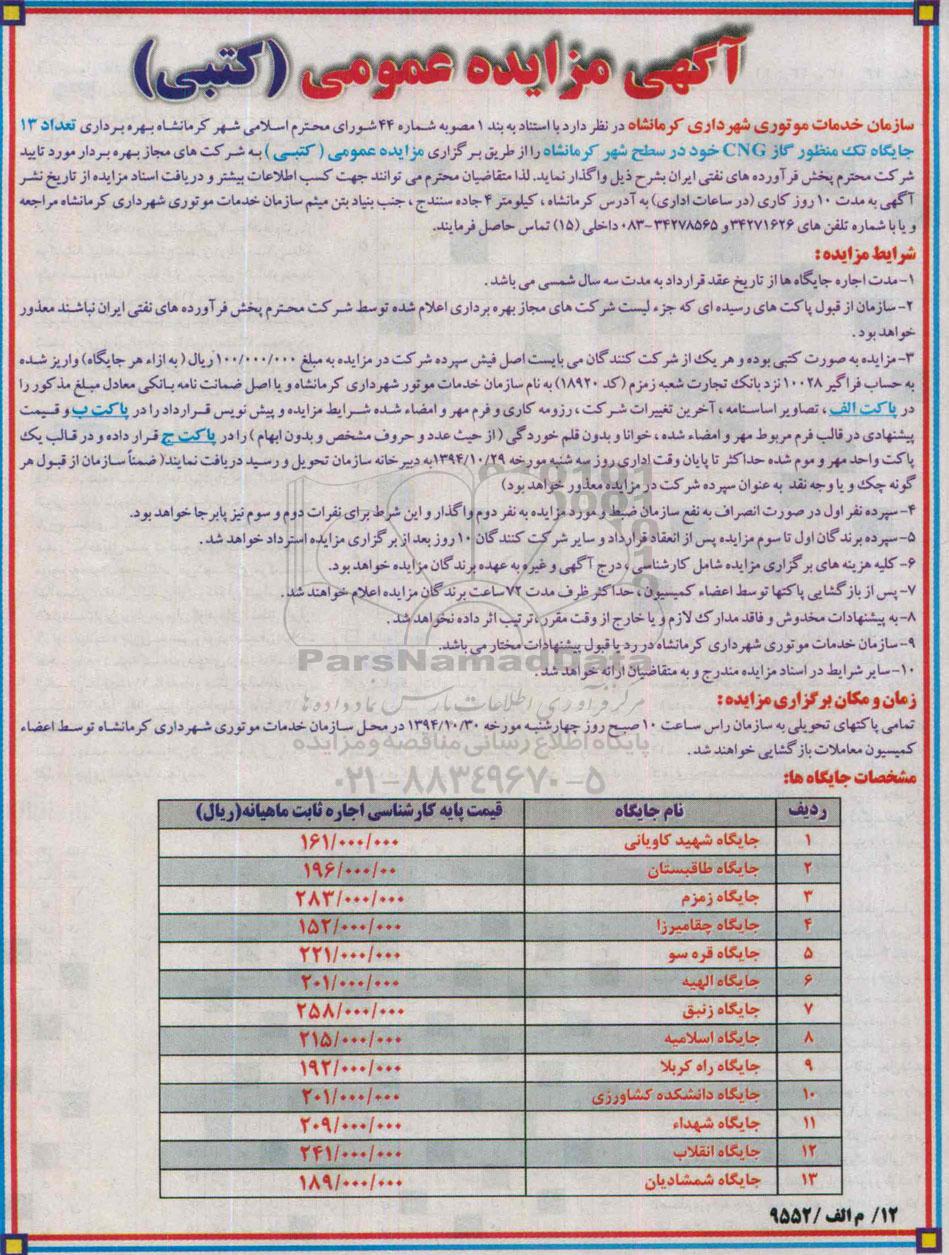 آگهی مزایده عمومی (کتبی)
سازمان خدمات موتوری شهرداری کرمانشاه در نظر دارد با استناد به بند ۱ مصوبه شماره ۴۴ شورای محترم اسلامی شهر کرمانشاه بهره برداری تعداد ۱۳
جایگاه تک منظور گاز CNG خود در سطح شهر کرمانشاه را از طریق برگزاری مزایده عمومی (کتبی) به شرکت های مجاز بهره بردار مورد تایید
شرکت محترم پخش فرآورده های نفتی ایران بشرح ذیل واگذار نماید. لذا متقاضیان محترم می توانند جهت کسب اطلاعات بیشتر و دریافت اسناد مزایده از تاریخ نشر
آگهی به مدت ۱۰ روز کاری (در ساعات اداری) به آدرس کرمانشاه ، کیلومتر ۴ جاده سنندج ، جنب بنیاد بتن میثم سازمان خدمات موتوری شهرداری کرمانشاه مراجعه
و یا با شماره تلفن های ۳۴۲۷۱۶۲۶ و ۳۴۲۷۸۵۶۵-۰۸۳ داخلی (۱۵) تماس حاصل فرمایند.
شرایط مزایده :
۱-مدت اجاره جایگاه ها از تاریخ عقد قرارداد به مدت سه سال شمسی می باشد .
۲- سازمان از قبول پاکت های رسیده ای که جزء لیست شرکت های مجاز بهره برداری اعلام شده توسط شرکت محترم پخش فرآورده های نفتی ایران نباشند معذور
خواهد بود .
۳- مزایده به صورت کتبی بوده و هر یک از شرکت کنندگان می بایست اصل فیش سپرده شرکت در مزایده به مبلغ ۱۰۰/۰۰۰/۰۰۰ ریال ( به ازاء هر جایگاه) واریز شده
به حساب فراگیر ۱۰۰۲۸ نزد بانک تجارت شعبه زمزم (کد ۱۸۹۲۰) به نام سازمان خدمات موتور شهرداری کرمانشاه و یا اصل ضمانت نامه بانکی معادل مبلغ مذکور را
در پاکت الف ، تصاویر اساسنامه ، آخرین تغییرات شرکت ، رزومه کاری و فرم مهر و امضاء شده شرایط مزایده و پیش نویس قرارداد را در پاکت ب و قیمت
پیشنهادی در قالب فرم مربوط مهر و امضاء شده ، خوانا و بدون قلم خوردگی ( از حیث عدد و حروف مشخص و بدون ابهام ) را در پاکت ج قرار داده و در قالب یک
پاکت واحد مهر و موم شده حداکثر تا پایان وقت اداری روز سه شنبه مورخه ۱۳۹۴/۱۰/۲۹ به دبیرخانه سازمان تحویل و رسید دریافت نمایند( ضمناً سازمان از قبول هر
گونه چک و یا وجه نقد به عنوان سپرده شرکت در مزایده معذور خواهد بود)
۴- سپرده نفر اول در صورت انصراف به نفع سازمان ضبط و مورد مزایده به نفر دوم واگذار و این شرط برای نفرات دوم و سوم نیز پابرجا خواهد بود.
۵-سپرده برندگان اول تا سوم مزایده پس از انعقاد قرارداد و سایر شرکت کنندگان ۱۰ روز بعد از برگزاری مزایده استرداد خواهد شد .
۶- کلیه هزینه های برگزاری مزایده شامل کارشناسی ، درج آگهی و غیره به عهده برندگان مزایده خواهد بود.
۷- پس از بازگشایی پاکتها توسط اعضاء کمیسیون ، حداکثر ظرف مدت ۷۲ ساعت برندگان مزایده اعلام خواهند شد .
۸-به پیشنهادات مخدوش و فاقد مدارک لازم و یا خارج از وقت مقرر ، ترتیب اثر داده نخواهد شد .
۹- سازمان خدمات موتوری شهرداری کرمانشاه در رد یا قبول پیشنهادات مختار می باشد.
۱۰-سایر شرایط در اسناد مزایده مندرج و به متقاضیان ارائه خواهد شد .
ParsNamadData
زمان و مکان برگزاری مزایده :
مرکز فرآوری اطلاعات پارس نماد داده ها
تمامی پاکتهای تحویلی به سازمان راس ساعت ۱۰ صبح روز چهارشنبه مورخه ۱۳۹۴/۱۰/۳۰ در محل سازمان خدمات موتوری شهرداری کرمانشاه توسط اعضاء
کمیسیون معاملات بازگشایی خواهند شد .
پایگاه اطلاع رسانی مناقصه و مزایده
مشخصات جایگاه ها:
۰۲۱-۸۸۳۴۹۶۷۰-۵
ردیف نام جایگاه قیمت پایه کارشناسی اجاره ثابت ماهیانه(ریال)
۱ جایگاه شهید کاویانی ۱۶۱/۰۰۰/۰۰۰
۲ جایگاه طاقبستان ۱۹۶/۰۰۰/۰۰
۳ جایگاه زمزم ۲۸۳/۰۰۰/۰۰۰
۴ جایگاه چقامیرزا ۱۵۲/۰۰۰/۰۰۰
۵ جایگاه قره سو ۲۲۱/۰۰۰/۰۰۰
۶ جایگاه الهیه ۲۰۱/۰۰۰/۰۰۰
۷ جایگاه زنبق ۲۵۸/۰۰۰/۰۰۰
۸ جایگاه اسلامیه ۲۱۵/۰۰۰/۰۰۰
۹ جایگاه راه کربلا ۱۹۲/۰۰۰/۰۰۰
۱۰ جایگاه دانشکده کشاورزی ۲۰۱/۰۰۰/۰۰۰
۱۱ جایگاه شهداء ۲۰۹/۰۰۰/۰۰۰
۱۲ جایگاه انقلاب ۲۴۱/۰۰۰/۰۰۰
۱۳ جایگاه شمشادیان ۱۸۹/۰۰۰/۰۰۰
۱۲/ م الف /۹۵۵۲